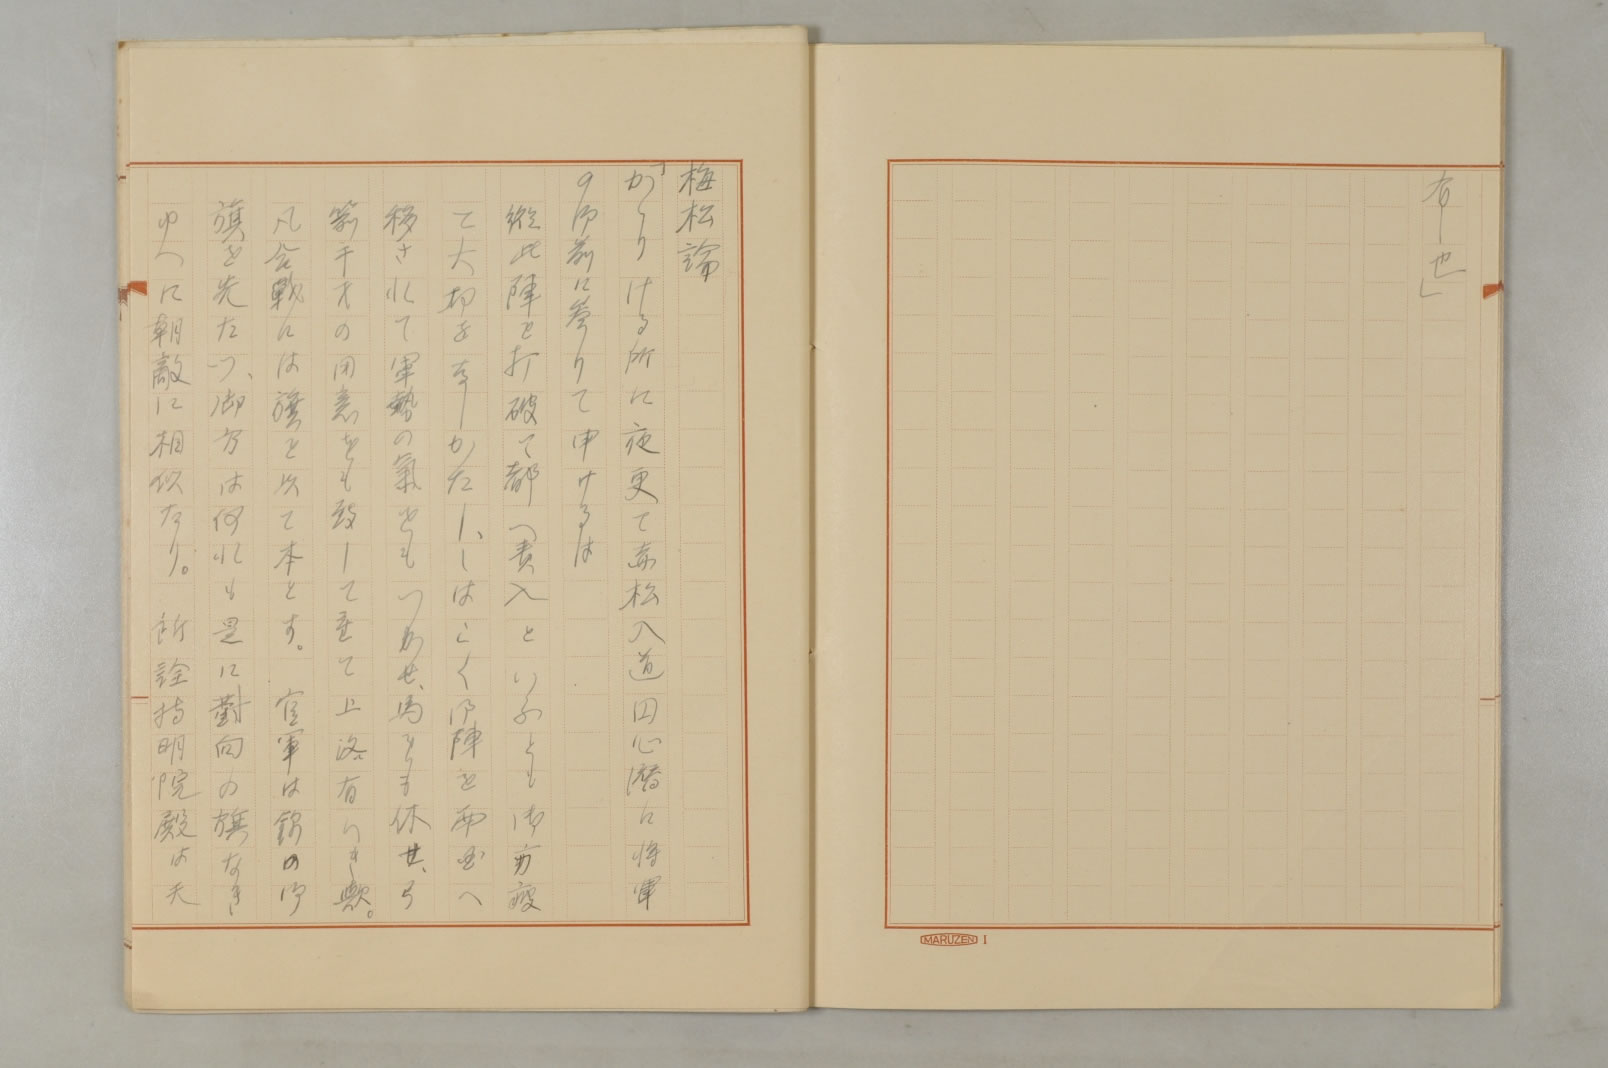 有し也」
MARUZEN 1
梅松論
「かゝりける所に夜更て赤松入道円心潛に将軍
の御前に参りて申けるは
縦此陣を打破て都へ責入といふとも御方疲
て大功を成しかたし、しはらく御陣を西国へ
移されて軍勢の氣をもつかせ、馬をも休せ、弓
箭干戈の用意をも致して重て上洛有りき歟。
凡合戦には旗を以て本とす。官軍は錦の御
旗を先たつ、御方は何れも是に對向の旗なき
ゆへに朝敵に相似たり。所詮持明院殿は天